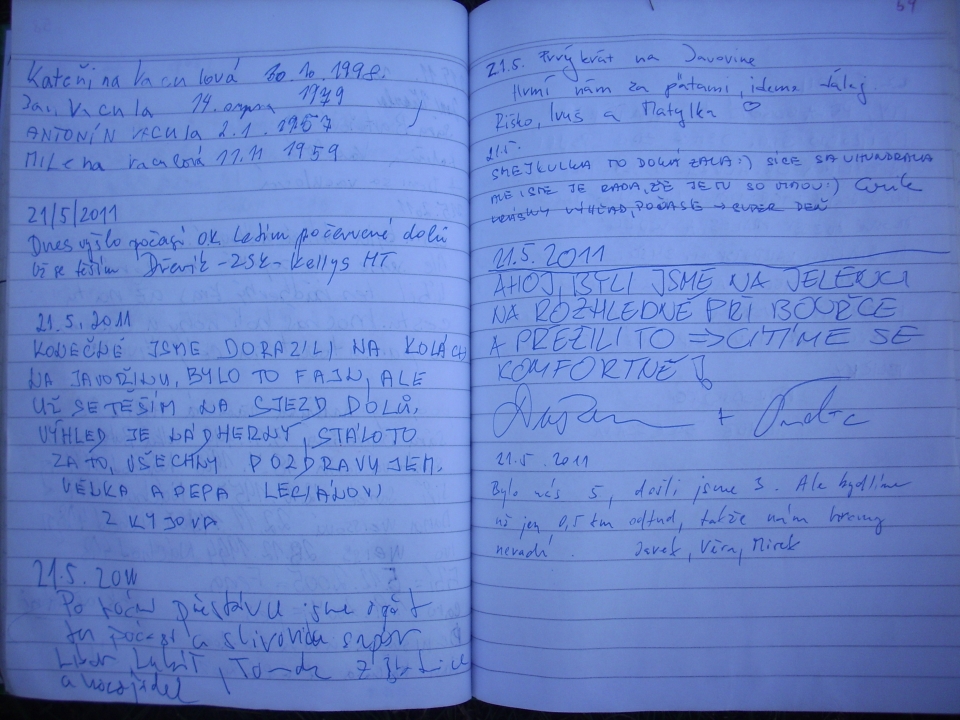 Kateřina Vaculová 30.10.1998.
Jan Vacula 14. srpna 1979
ANTONÍN VACULA 2.1.1957
MILena vaculová 11.11 1959
21/5/2011
Dnes vyšlo počasí OK Letím počervené dolů
Už se těším Dřevík - ZSK - Kellys HT
21.5. 2011
KONEČNĚ JSME DORAZILI NA KOLÁCH
NA JAVOŘINU, BYLO TO FAJN, ALE
UŽ SE TĚŠÍM NA SJEZD DOLŮ.
VÝHLED JE NÁDHERNÝ, STÁLO TO
ZA TO, VŠECHNY POZDRAVUJEM.
VENKA A PEPA LECIÁNOVI
Z KYJOVA
21.5. 2011
Po roční přestávce jsme opět
tu počasí a slivovica super
Libor, Tonda z
a
59
21.5. Prvýkrát na Javorine
Hrmí nám za pätami, ideme ďalej.
Riško, Ivuš a Matylka ♡
21.5.
SMEJKULKA TO DOKÁZALA:) SICE SA
ALE JSME JE RADA, ŽE JE TU SO MNOU:)
VÝHĽAD, POČASIE → SUPER DEŇ
21.5. 2011
AHOJ, BYLI JSME NA JELENCI
NA ROZHLEDNĚ PŘI BOUŘCE
A PŘEŽILI TO => CÍTÍME SE
KOMFORTNĚ!
Dušan + Ondra
21.5. 2011
Bylo nás 5, došli jsme 3. Ale bydlíme
už jen 0,5 km odtud, takže nám hromy
nevadí. Jarek, Věra, Mirek